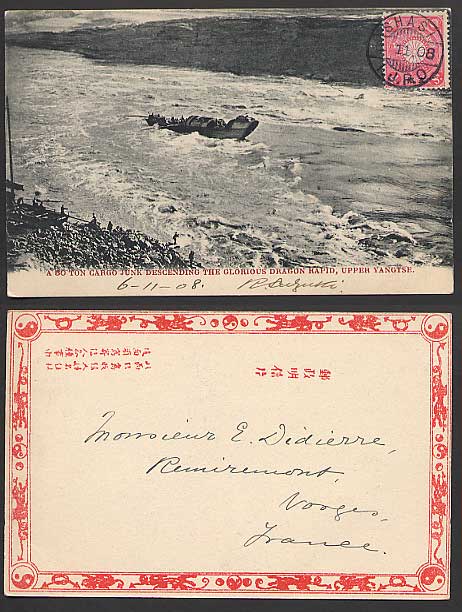 SHASI
11.08
I.J.P.O
A 80 TON CARGO JUNK DESCENDING THE GLORIOUS DRAGON RAPID, UPPER YANGTSE.
6-11-08. R. Suzuki.
郵政
明信片
Monsieur E. Didierre,
Remiremont,
Vosges,
France.